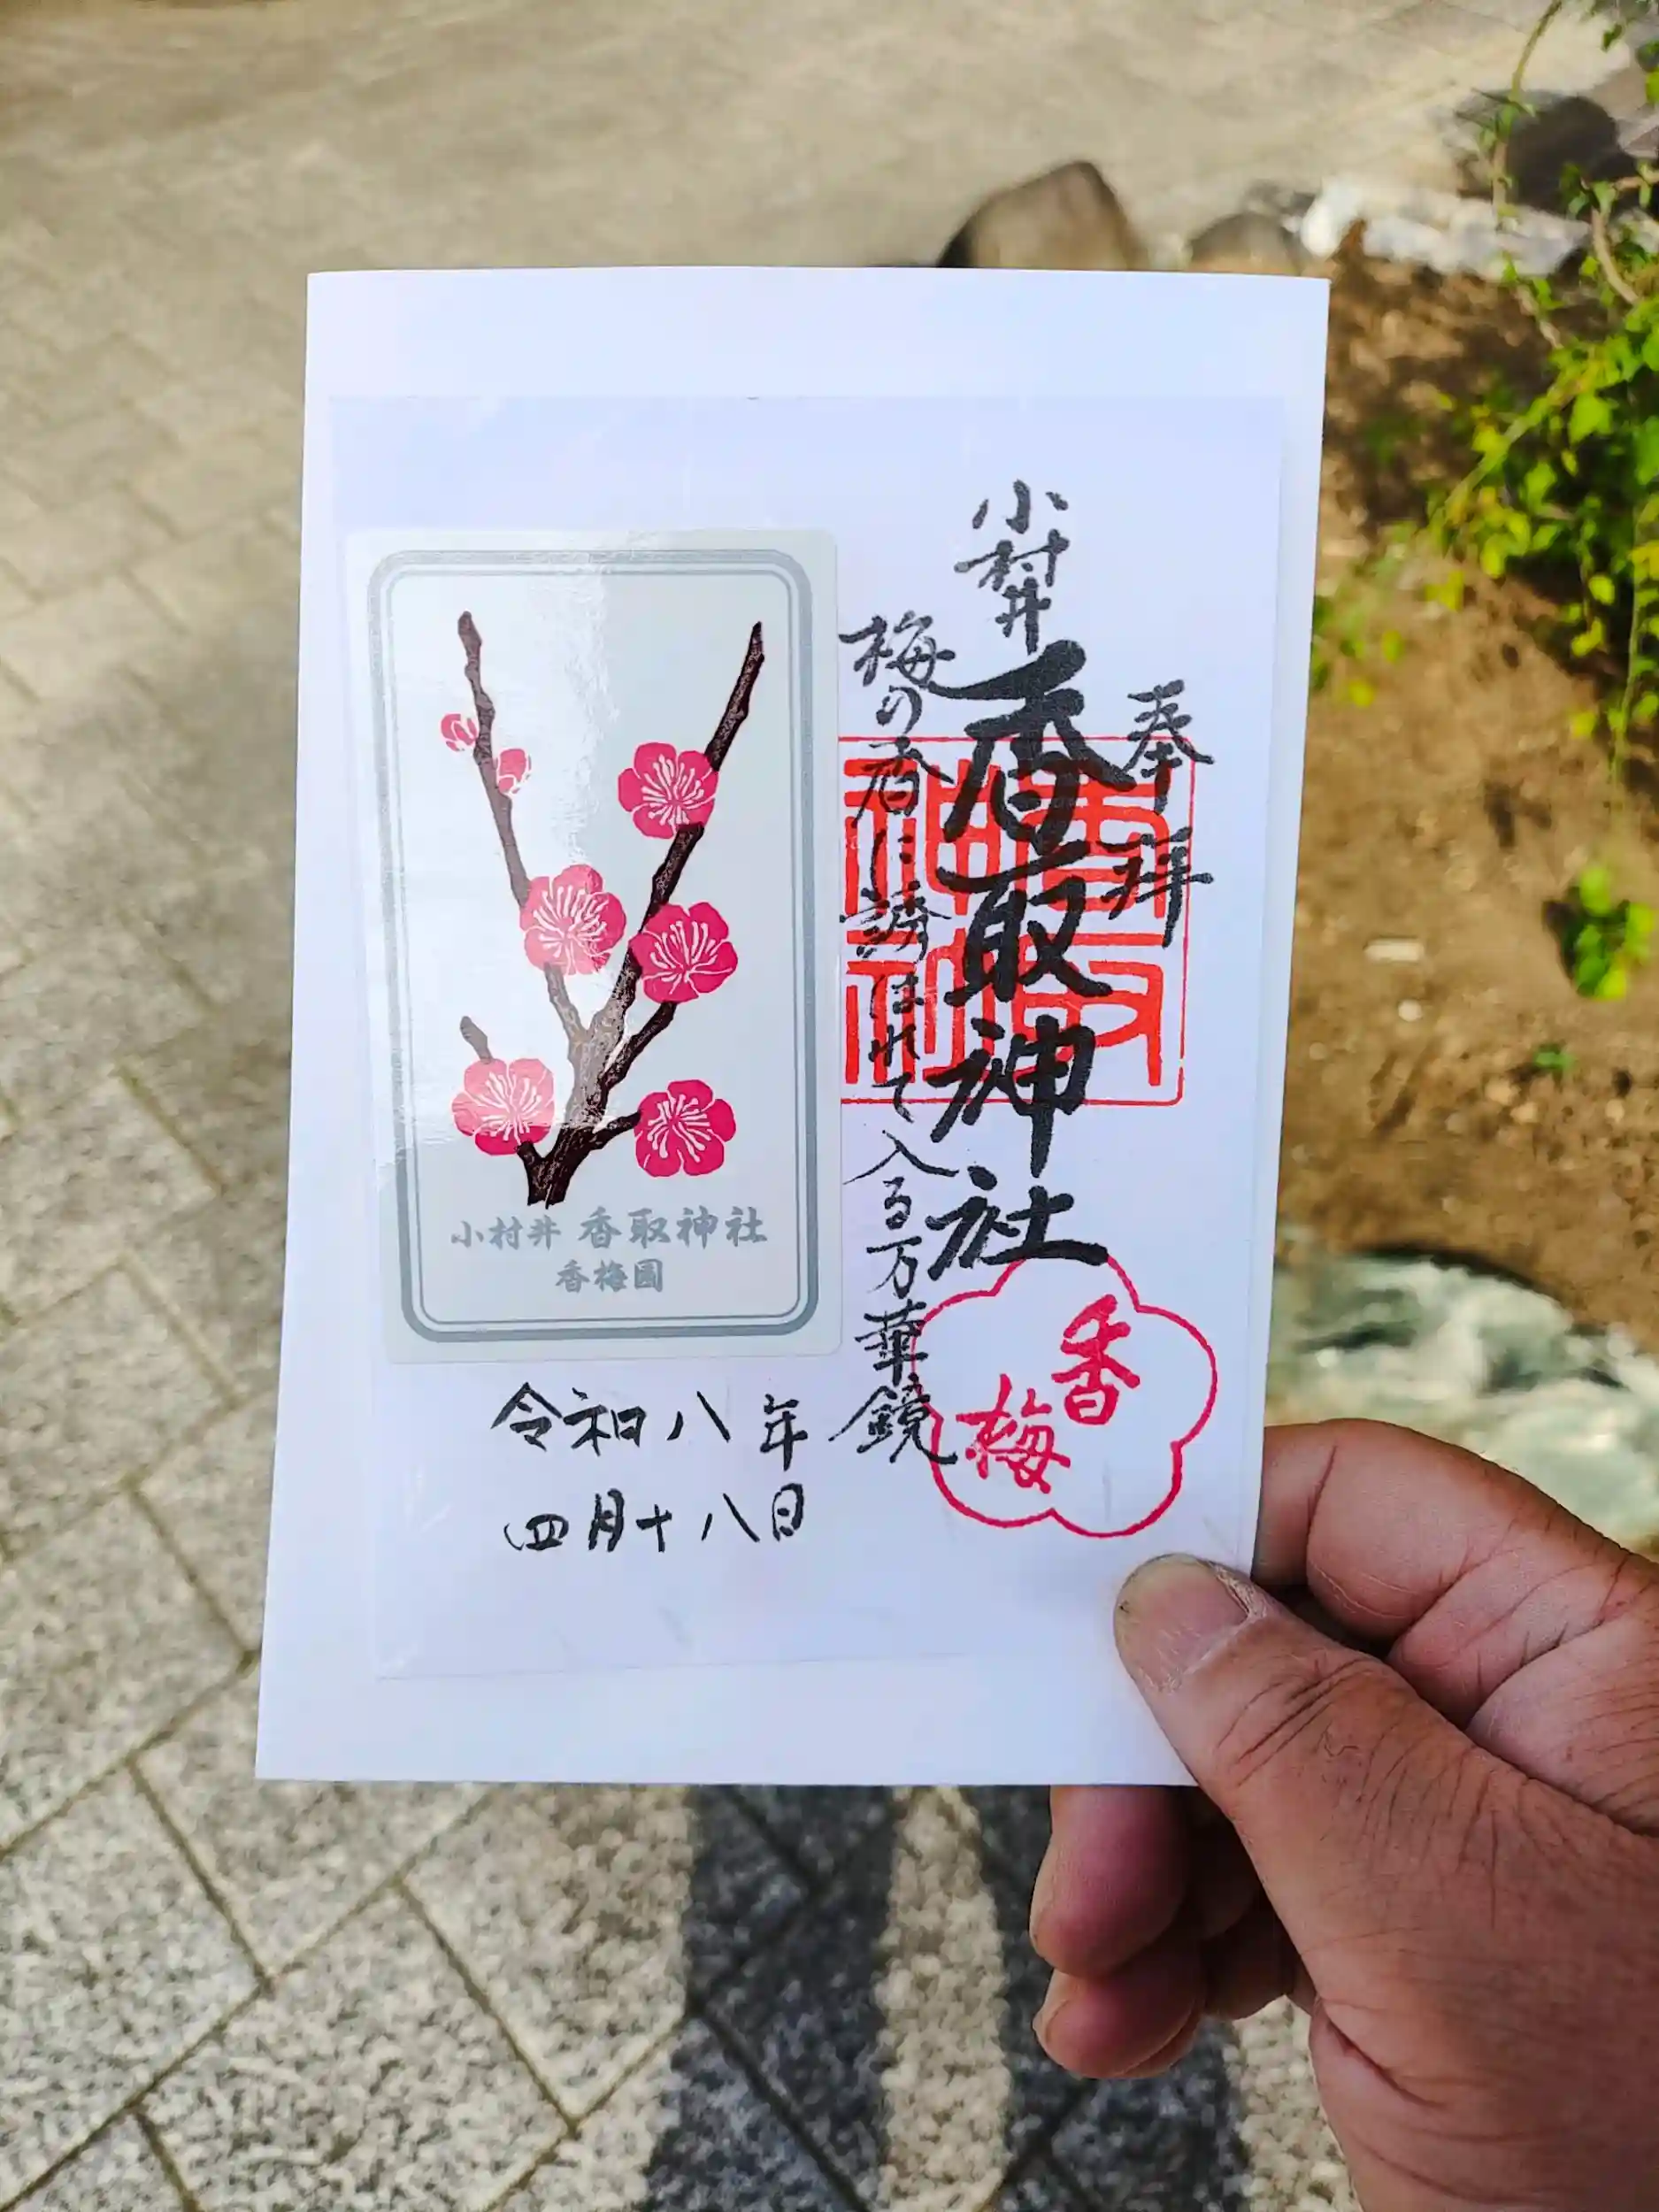 奉拝
小村井
香取神社
梅の香に誘はれて入る万華鏡
香取神社
香梅
小村井 香取神社
香梅園
令和八年
四月十八日